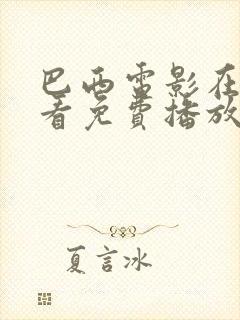 巴西雷影在
看免费播放
夏言冰